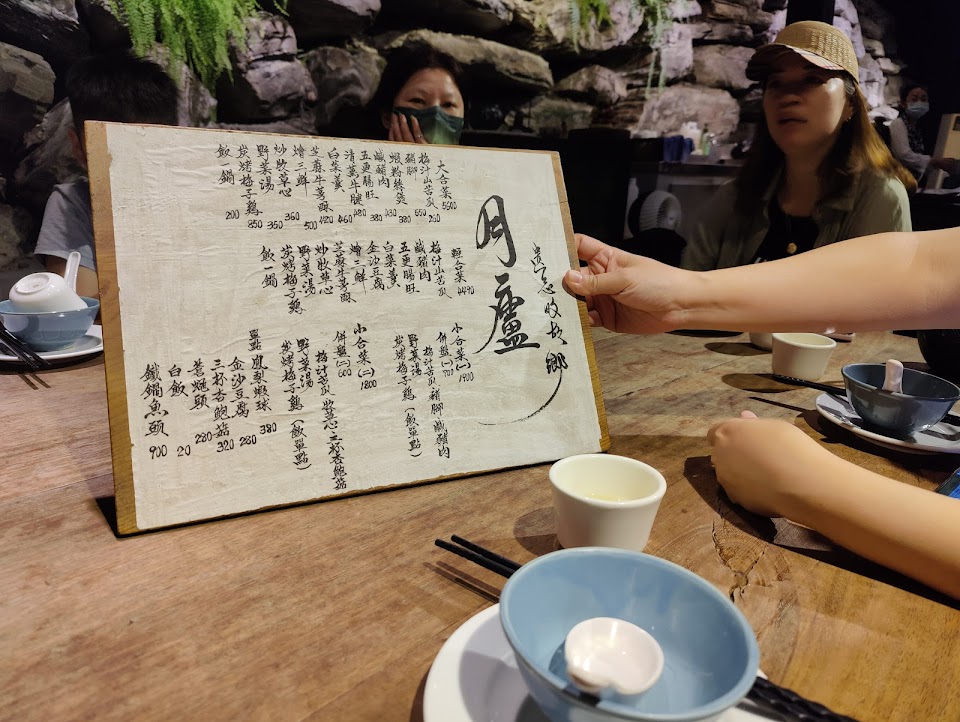 月廬
大合菜 5500
梅汁山苦瓜 250
豬腳 650
蝦粉絲煲 380
鹹豬肉
五更腸旺 380
清蒸牛腱 480
白菜羹 460
芝蔴牛蒡酥 420
燴三鮮 500
炒牧草心 360
野菜湯 350
炭烤梅子雞 850
飯一鍋 200
輕合菜 4490
梅汁山苦瓜
鹹豬肉
五更腸旺
白菜羹
金沙豆腐
燴三鮮
芝蔴牛蒡酥
炒牧草心
野菜湯
炭烤梅子雞
飯一鍋
小合菜(一)1900
併盤(一)700
梅汁苦瓜 豬腳 鹹豬肉
野菜湯
炭烤梅子雞(飯單點)
小合菜(二)1800
併盤(二)600
梅汁苦瓜 三杯杏鮑菇
野菜湯
炭烤梅子雞(飯單點)
單點 鳳梨蝦球 380
金沙豆腐 280
三杯杏鮑菇 320
280
白飯 20
鐵鍋魚頭 900